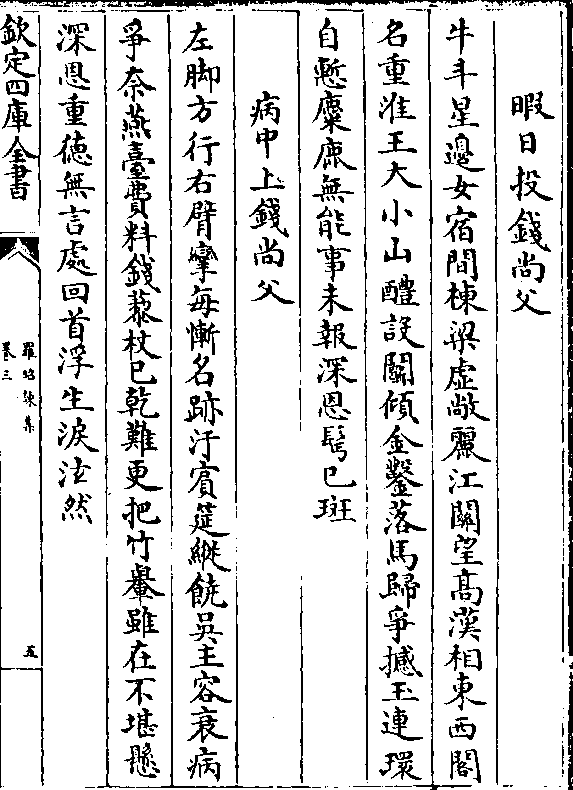 暇日投錢尚父
牛斗星邊女宿間棟梁虛敞麗江關望高漢相東西閣
名重淮王大小山醴設關傾金鑿落馬歸爭撼玉連環
自慙麋鹿無能事未報深恩髩已斑
病中上錢尚父
左脚方行右臂攣每慚名跡汙賓筵縱饒吳主容衰病
爭奈燕臺費料錢藜杖已乾難更把竹轝雖在不堪懸
深恩重德無言處回首浮生淚泫然
欽定四庫全書
羅昭諫集
卷三
五